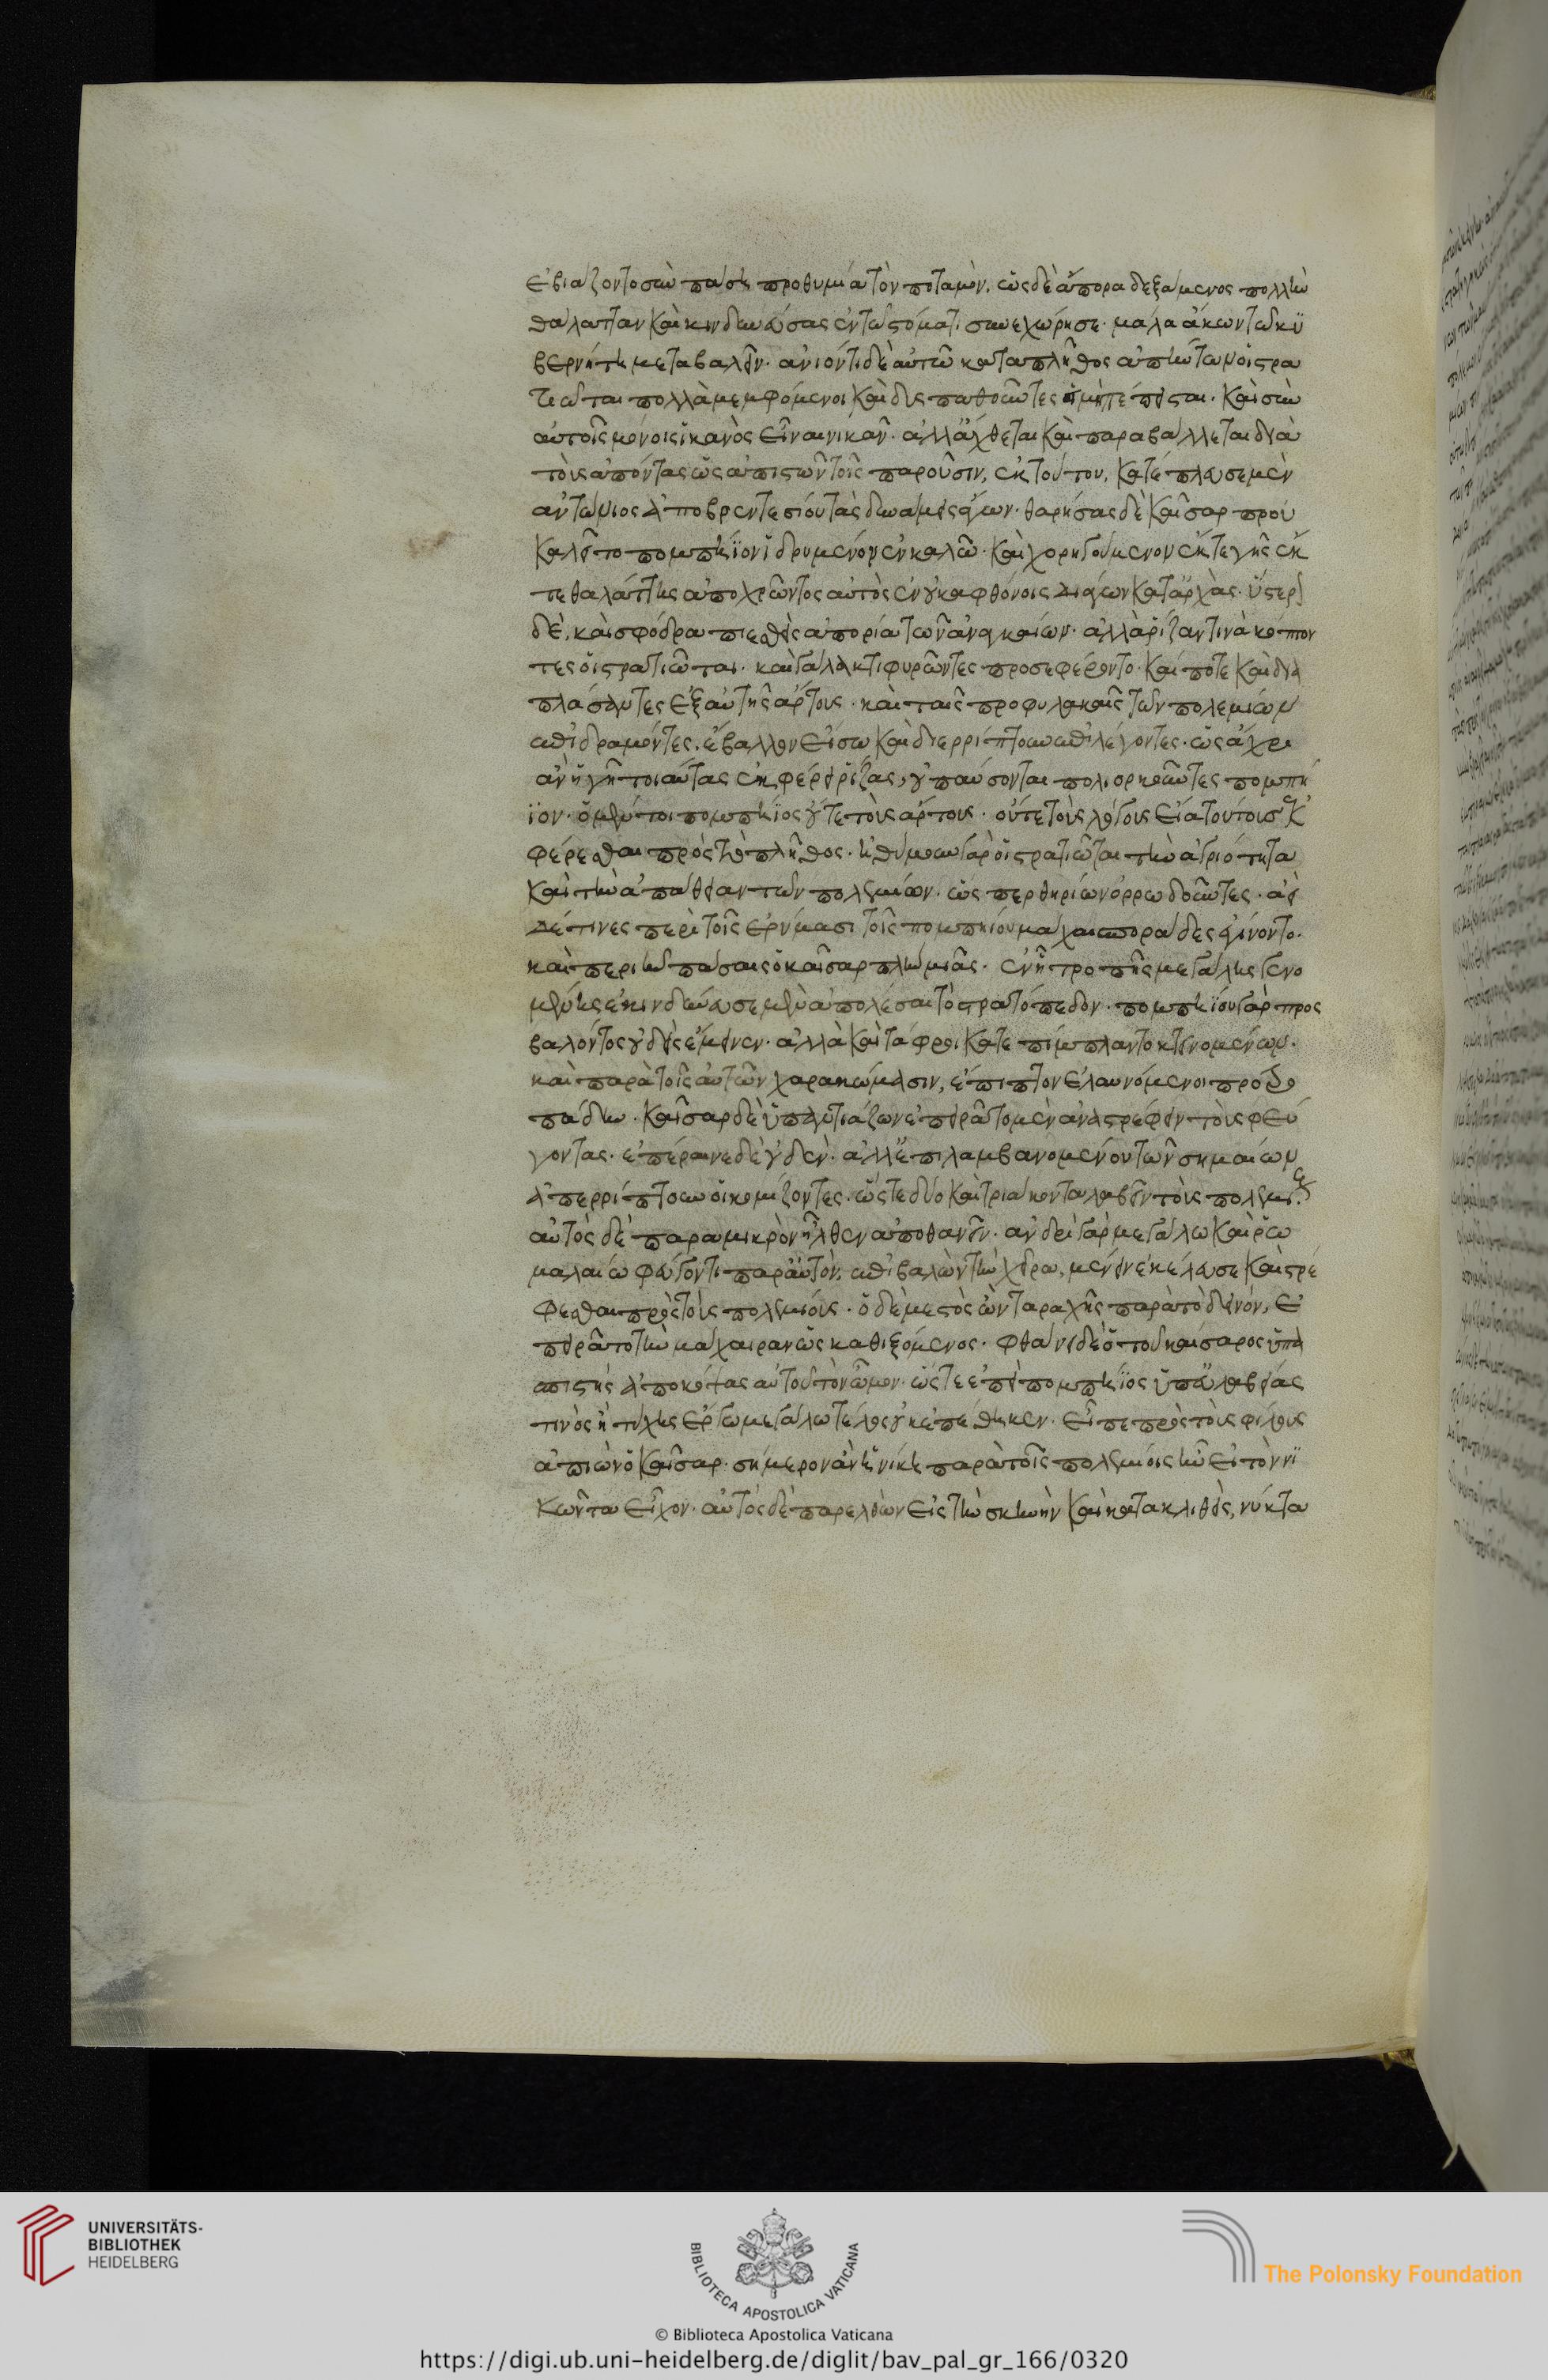 ἐβιάζοντο σὺν πάση προθυμία τὸν ποταμόν. ὡς δὲ ἄπορα δεξάμενος πολλὴν
θάλατταν καὶ κινδυνεύσας ἐν τῶ στόματι συνεχώρησε μάλα ἄκων τῶ κυ
βερνήτη μεταβαλεῖν. ἀνιόντι δὲ αὐτῶ κατα πλῆθος ἀπήντων οἱ στρα
τιῶται πολλὰ μεμφόμενοι καὶ δυσπαθοῦντες εἰ μὴ πέπεισται. καὶ σὺν
αὐτοῖς μόνοις ἱκανὸς εἶναι νικᾶν. ἀλλ' ἄχθεται καὶ παραβάλλεται διὰ
τοὺς ἀπόντας ὡς ἀπιστῶν τοῖς παροῦσιν. ἐκ τούτου, κατέπλευσε μὲν
ἀντώνιος ἀπο βρεντεσίου τὰς δυνάμεις ἄγων. θαρήσας δὲ καῖσαρ πρου
καλεῖτο πομπήϊον ἱδρυμένον ἐν καλῶ. καὶ χορηγούμενον ἔκ τε γῆς ἐκ
τε θαλάττης ἀποχρῶντος αὐτὸς ἐν οὐκ ἀφθόνοις διάγων κατ' ἀρχὰς. ὕστερον
δὲ, καὶ σφόδρα πιεσθεὶς ἀπορία τῶν ἀναγκαίων. ἀλλὰ ῥίζαν τινὰ κόπτον
τες οἱ στρατιῶται. καὶ γάλακτι φυρῶντες προσεφέροντο. καί ποτε καὶ δια
πλάσαντες ἐξ αὐτῆς ἄρτους. καὶ ταῖς προφυλακαῖς τῶν πολεμίων
ἐπιδραμόντες. ἔβαλλον εἴσω καὶ διερρίπτουν ἐπιλέγοντες. ὡς ἄχρι
ἂν ἡ γῆ τοιαύτας ἐκφέρει ῥίζας, οὐ παύσονται πολιορκοῦντες πομπή
ϊον. ὁ μέντοι πομπήϊος οὔτε τοὺς ἄρτους. οὔτε τοὺς λόγους εἴα τούτους ἐκ
φέρεσθαι πρὸς τὸ πλῆθος. ἠθύμουν γὰρ οἱ στρατιῶται τὴν ἀγριότητα
καὶ τὴν ἀπάθειαν τῶν πολεμίων. ὥσπερ θηρίων ὀρρωδοῦντες. ἀεὶ
δέ τινες περὶ τοῖς ἐρύμασι τοῖς πομπηίου μάχαι σποράδες ἐγίνοντο.
καὶ περιῆν πάσαις ὁ καῖσαρ πλὴν μιᾶς. ἐν ἧ τροπῆς μεγάλης γενο
μένης ἐκινδύνευσε μὲν ἀπολέσαι τὸ στρατόπεδον. πομπηΐου γὰρ προς
βαλόντος οὐδεὶς ἔμεινεν. ἀλλὰ καὶ τάφροι κατεπίμπλαντο κτεινομένων.
καὶ παρὰ τοῖς αὐτῶν χαρακώμασιν, ἔπιπτον ἐλαυνόμενοι προτρο
πάδην. καῖσαρ δὲ ὑπαντιάζων ἐπειρᾶτο μὲν ἀναστρέφειν τοὺς φεύ
γοντας. ἐπέραινε δὲ οὐδέν. ἀλλ' ἐπιλαμβανομένου τῶν σημαιῶν
ἀπερρίπτουν οἱ κομίζοντες. ὥστε δύο καὶ τριάκοντα λαβεῖν τοὺς πολεμίους.
αὐτὸς δὲ παρα μικρὸν ἦλθεν ἀποθανεῖν. ἀνδρὶ γὰρ μεγάλω καὶ ῥω
μαλαίω φεύγοντι παρ' αὐτὸν, ἐπιβαλὼν τὴν χεῖρα, μένειν ἐκέλευσε καὶ στρέ
φεσθαι πρὸς τοὺς πολεμίους. ὁ δὲ μεστὸς ὢν ταραχῆς παρὰ τὸ δεινόν, ἐ
πειρᾶτο τὴν μάχαιραν ὡς καθιξόμενος. φθάνει δὲ ὁ τοῦ καίσαρος ὑπα
σπιστὴς ἀποκόψας αὐτοῦ τὸν ὦμον. ὥστε ἐπεὶ πομπήϊος ὑπ' εὐλαβείας
τινὸς ἢ τύχης ἔργω μεγάλω τέλος οὐκ ἐπέθηκεν. εἶπε πρὸς τοὺς φίλους
ἀπιὼν ὁ καῖσαρ. σήμερον ἂν ἡ νίκη παρὰ τοῖς πολεμίοις ἦν εἰ τὸν νι
κῶντα εἶχον. αὐτὸς δὲ παρελθὼν εἰς τὴν σκηνὴν καὶ κατακλιθεὶς, νύκτα
UNIVERSITÄTS-
BIBLIOTHEK
HEIDELBERG
BIBLIOTECA APOSTOLICA VATICANA
© Biblioteca Apostolica Vaticana
The Polonsky Foundation
https://digi.ub.uni-heidelberg.de/diglit/bav_pal_gr_166/0320